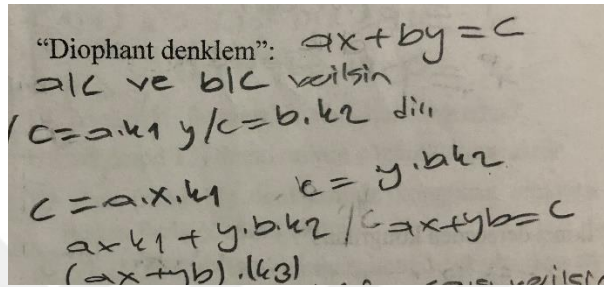 “Diophant denklem”: ax+by=c
a|c ve b|c verilsin
/c=a.k1 y/c=b.k2 dir
c=a.x.k1 c=y.b.k2
axk1+y.b.k2 / ax+yb=c
(ax+yb).(k3)